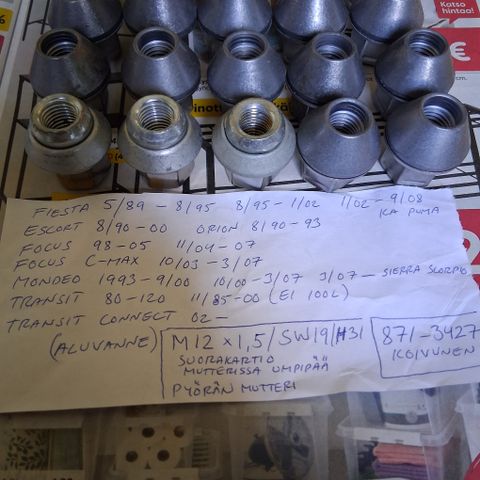 Katso
hintaa!
€
FIESTA 5/89 – 8/95 8/95 – 11/02 11/02 – 9/08
KA PUMA
ESCORT 8/90 – 00 ORION 8/90 – 93
FOCUS 98 – 05 11/04 – 07
FOCUS C-MAX 10/03 – 3/07
MONDEO 1993 – 9/00 10/00 – 3/07 3/07 – SIERRA SCORPIO
TRANSIT 80 – 120 11/85 – 00 (EI 100L)
TRANSIT CONNECT 02 –
(ALUVANNE) M12 x 1,5 / SW19 / H31 871-3427
SUORAKARTIO KOIVUNEN
MUTTERISSA UMPIPÄÄ
PYÖRÄN MUTTERI